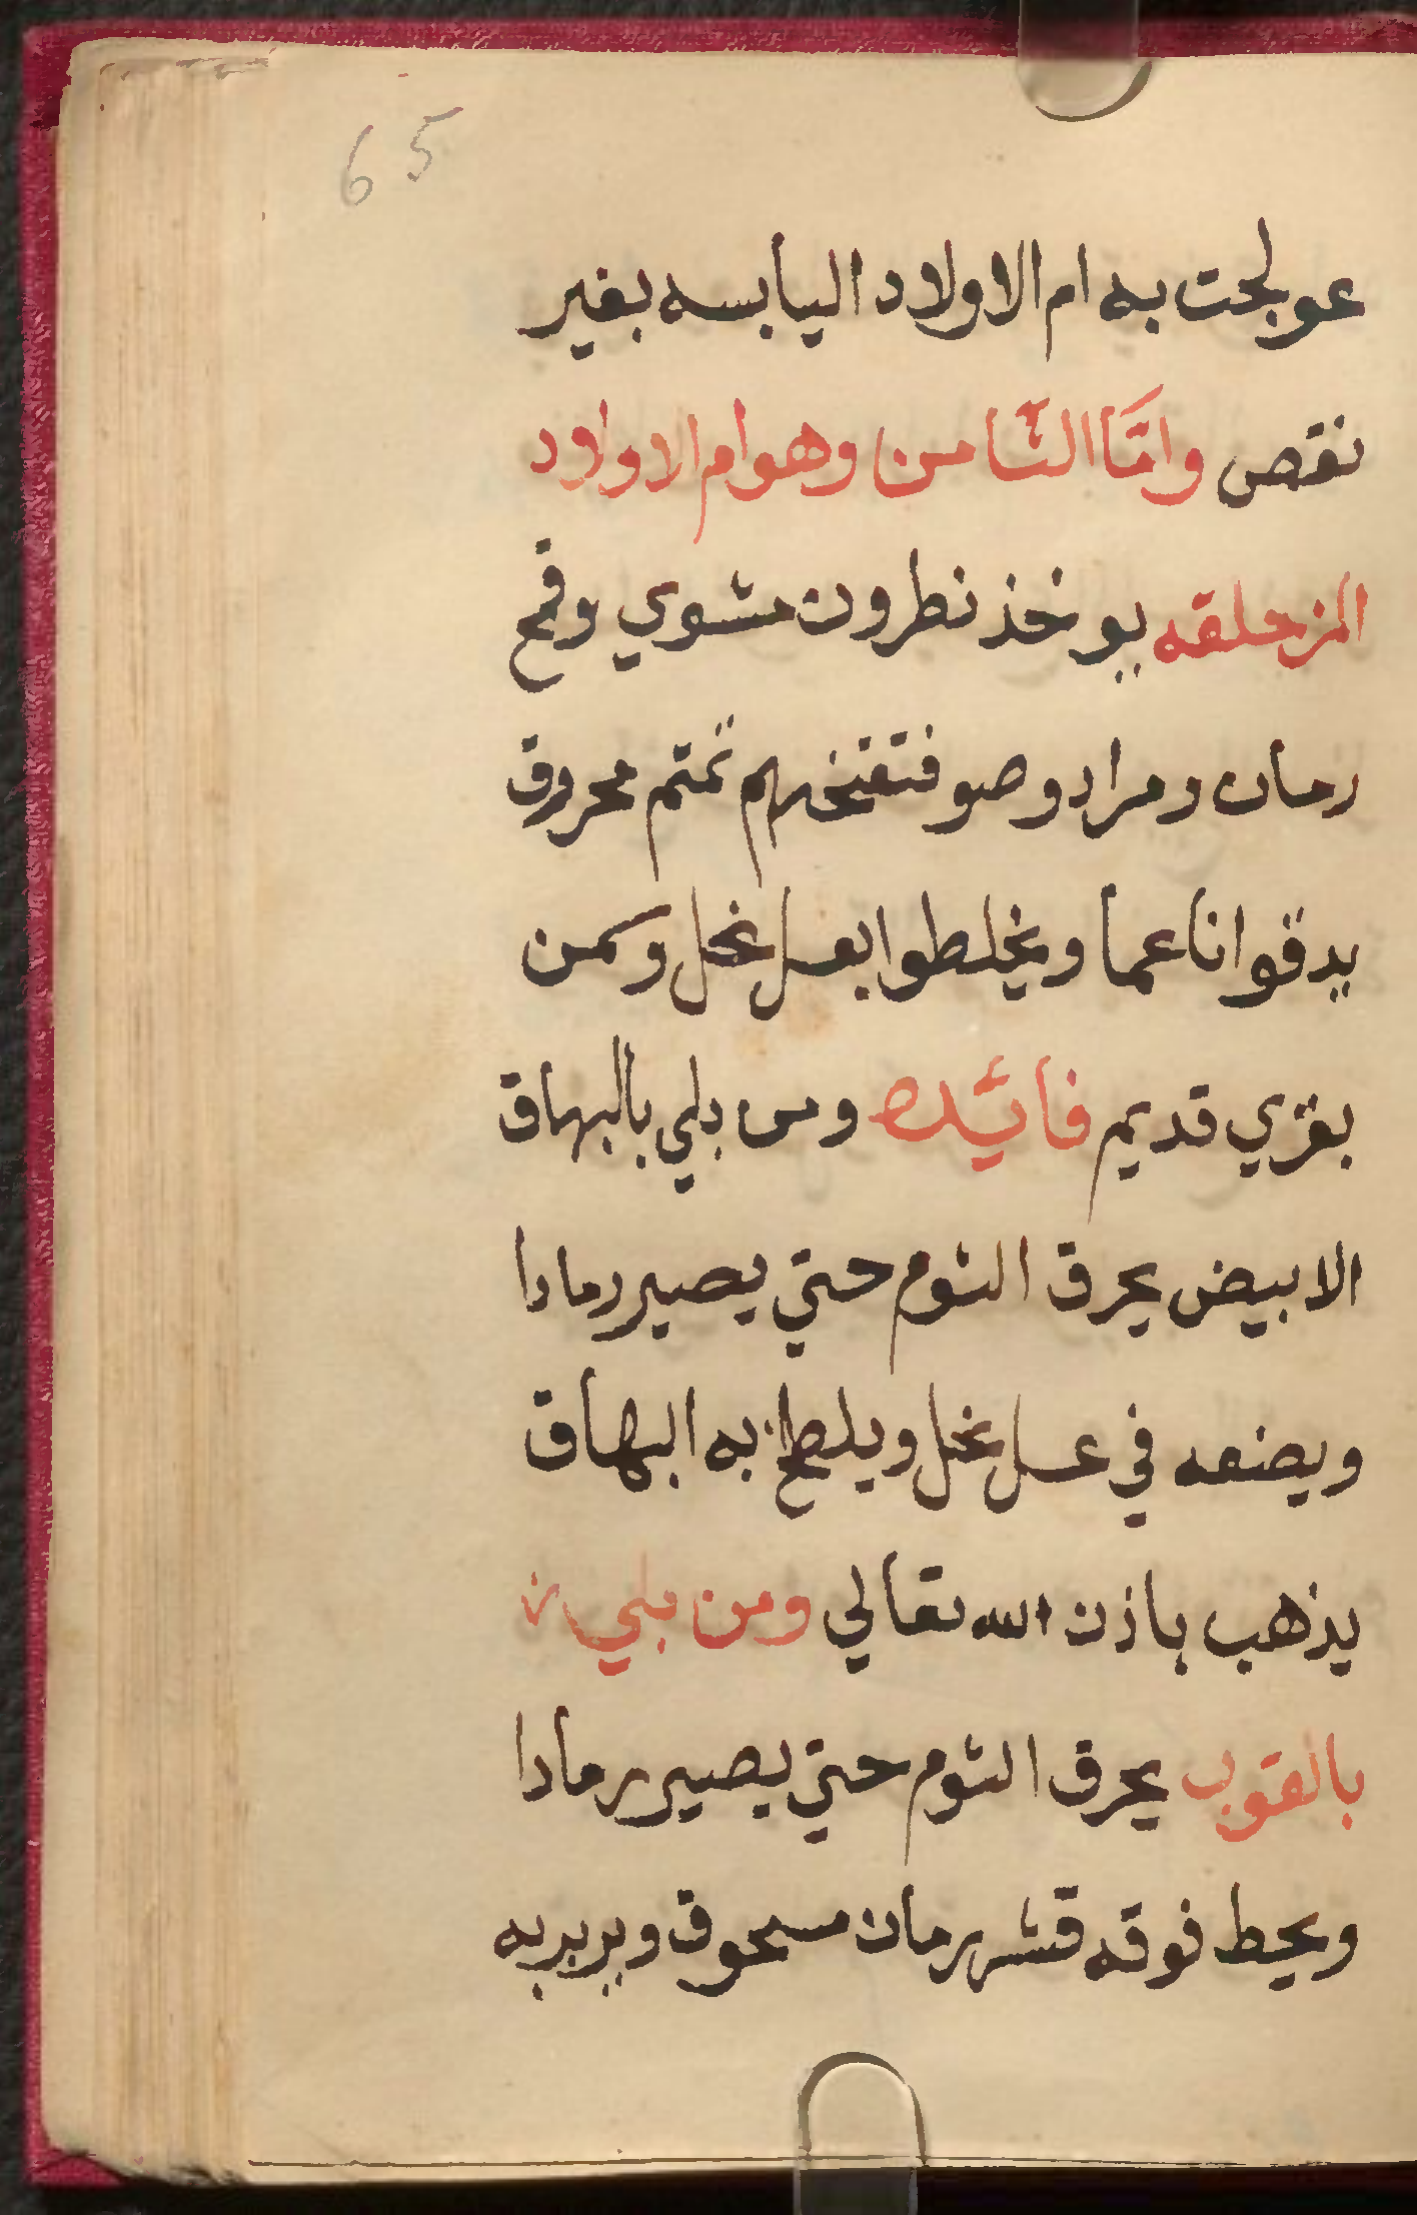 65
عولجت به ام الاولاد اليابسه بغير
نقص وامّا الثامن وهو ام الاولاد
المزحلقه يوخذ نطرون مشوي وقمح
رمان ومراد وصوفتفتخرهم تمتم محروق
يدقوا ناعما ويخلطوا بعسل نحل وسمن
بقري قديم فائيده ومن بلي بالبهاق
الابيض يحرق الثوم حتي يصير رمادا
ويضعه في عسل نحل ويلطخ به البهاق
يذهب باذن الله تعالي ومن بلي
بالقوب يحرق الثوم حتي يصير رمادا
ويحط فوقه قشر رمان مسحوق ويربربه